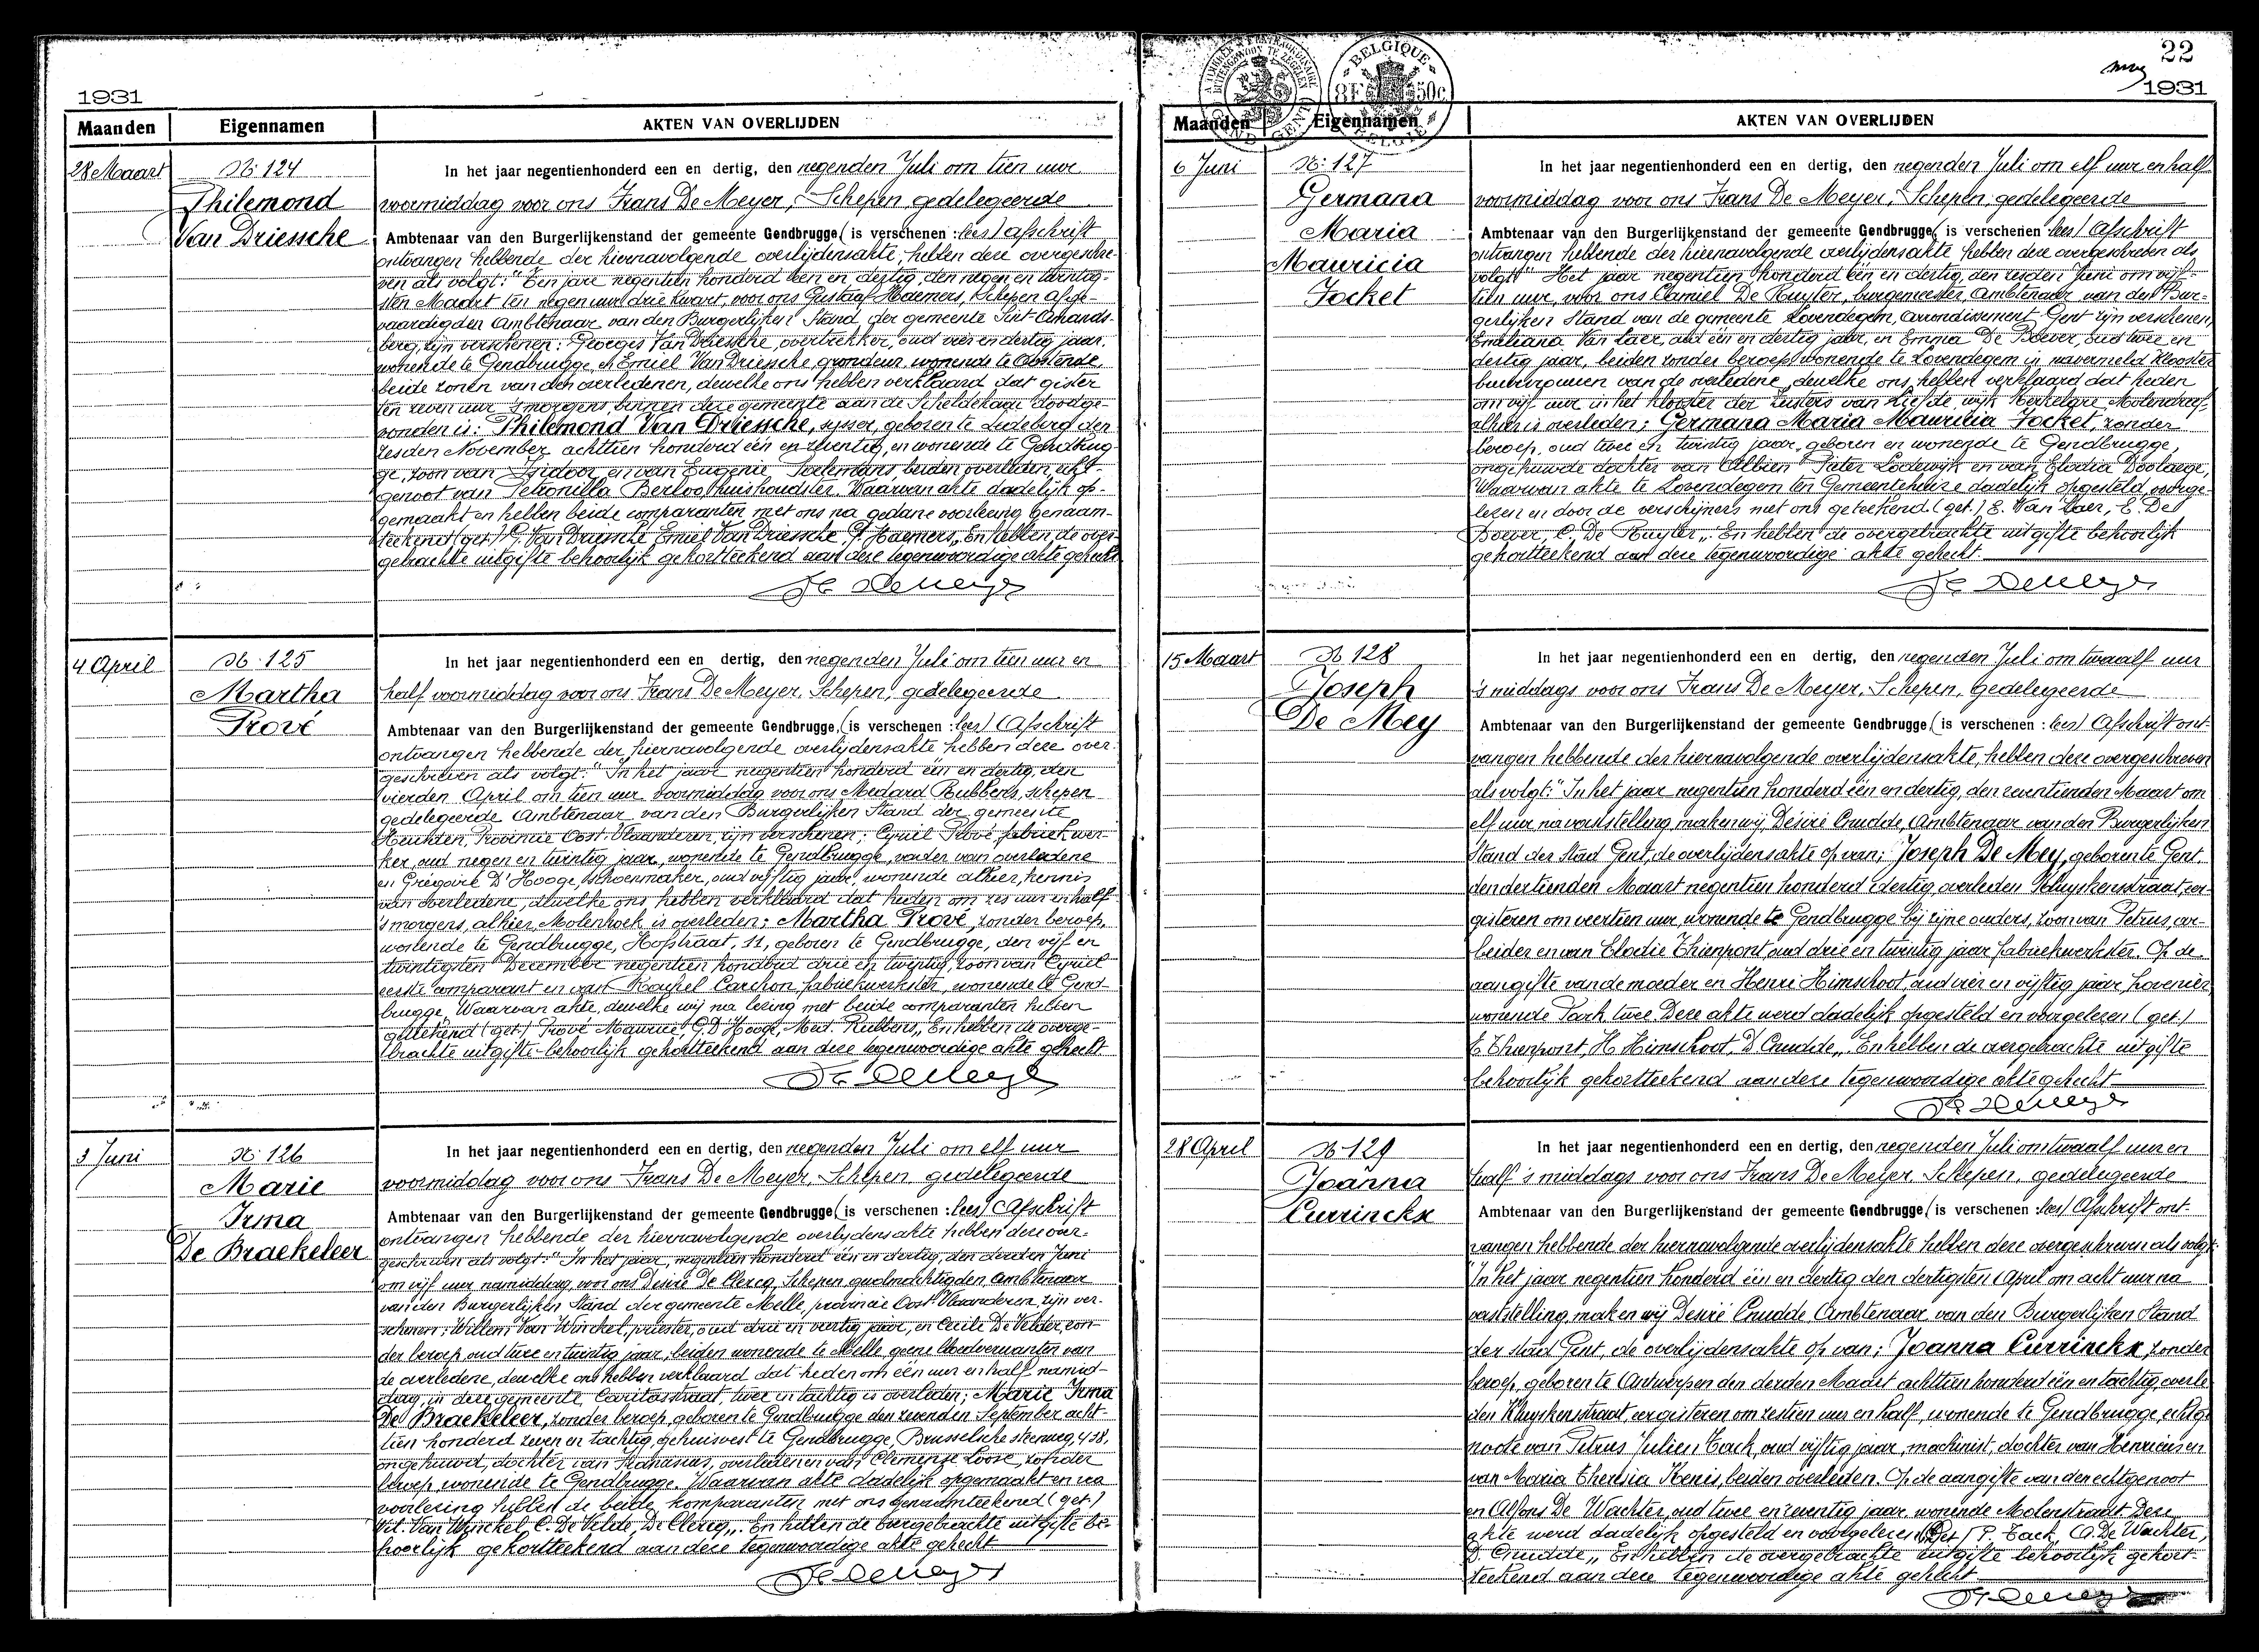 1931
Maanden Eigennamen AKTEN VAN OVERLIJDEN
28 Maart
N: 124
Philemond
Van Driessche
In het jaar negentienhonderd een en dertig, den negenden Juli om tien uur
voormiddag voor ons Frans De Meyer, Schepen, gedelegeerde
Ambtenaar van den Burgerlijkenstand der gemeente Gendbrugge (is verschenen : lees) Afschrift
ontvangen hebbende der hiernavolgende overlijdensakte, hebben deze overgeschre-
ven als volgt: "Een jare negentien honderd een en dertig, den negen en twintig-
sten Maart ten negen uur drie kwart, voor ons Gustaaf Haemers, Schepen afge-
vaardigden Ambtenaar van den Burgerlijken Stand der gemeente Sint-Amands-
berg, zijn verschenen: Georges Van Driessche, overtrekker, oud vier en dertig jaar,
wonende te Gendbrugge, & Emiel Van Driessche, grondeur, wonende te Oostende,
beide zonen van den overledenen, dewelke ons hebben verklaard dat gister
ten zeven uur 's morgens, binnen deze gemeente aan de Scheldekaai doodge-
vonden is: Philemond Van Driessche, sjasser, geboren te Ledeberg den
zesden November achttien honderd één en zeventig, en wonende te Gendbrug-
ge, zoon van Isidoor en van Eugenie Poelemans, beiden overleden, echt-
genoot van Petronilla Berloo, huishoudster. Waarvan akte dadelijk op-
gemaakt en hebben beide comparanten met ons na gedane voorlezing genaam-
teekend (get.) G. Van Driessche Emiel Van Driessche G. Haemers,, En hebben de over-
gebrachte uitgifte behoorlijk gekortteekend aan deze tegenwoordige akte gehecht.
Fr. De Meyer
4 April
N: 125
Martha
Prové
In het jaar negentienhonderd een en dertig, den negenden Juli om tien uur en
half voormiddag voor ons Frans De Meyer, Schepen, gedelegeerde
Ambtenaar van den Burgerlijkenstand der gemeente Gendbrugge, (is verschenen : lees) Afschrift
ontvangen hebbende der hiernavolgende overlijdensakte hebben deze over-
geschreven als volgt: "In het jaar negentien honderd één en dertig, den
vierden April om tien uur voormiddag voor ons Medard Rubbens, schepen
gedelegeerde Ambtenaar van den Burgerlijken Stand der gemeente
Heusden, Provincie Oost-Vlaanderen, zijn verschenen: Cyriel Prové, fabriekwer-
ker, oud negen en twintig jaar, wonende te Gendbrugge, vader van overledene
en Grégoire D'Hooge, schoenmaker, oud vijftig jaar, wonende alhier, kennis
van overledene, dewelke ons hebben verklaard dat heden om zes uur en half
's morgens, alhier, Molenhoek is overleden: Martha Prové, zonder beroep,
wonende te Gendbrugge, Hofstraat, 11, geboren te Gendbrugge, den vijf en
twintigsten December negentien honderd drie en twintig, zoon van Cyriel
eerste comparant en van Rachel Carchon, fabriekwerkster, wonende te Gend-
brugge. Waarvan akte, dewelke wij na lezing met beide comparanten hebben
geteekend (get.) Prové Maurice, G. D'Hooge, Med. Rubbens,, En hebben de overge-
brachte uitgifte behoorlijk gekortteekend aan deze tegenwoordige akte gehecht.
Fr. De Meyer
3 Juni
N: 126
Marie
Irma
De Braekeleer
In het jaar negentienhonderd een en dertig, den negenden Juli om elf uur
voormiddag voor ons Frans De Meyer, Schepen, gedelegeerde
Ambtenaar van den Burgerlijkenstand der gemeente Gendbrugge (is verschenen : lees) Afschrift
ontvangen hebbende der hiernavolgende overlijdensakte hebben deze over-
geschreven als volgt: "In het jaar, negentien honderd één en dertig, den derden Juni
om vijf uur namiddag, voor ons Desiré De Clercq, Schepen gevolmachtigden Ambtenaar
van den Burgerlijken Stand der gemeente Melle, provincie Oost-Vlaanderen, zijn ver-
schenen: Willem Van Winckel, priester, oud drie en veertig jaar, en Cecile De Velder, zon-
der beroep oud twee en twintig jaar, beiden wonende te Melle geene bloedverwanten van
de overledene, dewelke ons hebben verklaard dat heden om één uur en half namid-
dag, in deze gemeente, Caritasstraat, twee en tachtig is overleden; Marie Irma
De Braekeleer, zonder beroep, geboren te Gendbrugge den zevenden September acht-
tien honderd zeven en tachtig, gehuisvest te Gendbrugge, Brusselsche steenweg, 438,
ongehuwd, dochter van Athanasius, overleden en van Clemence Loose, zonder
beroep, wonende te Gendbrugge. Waarvan akte dadelijk opgemaakt en na
voorlezing hebben de beide komparanten met ons genaamteekend (get.)
Wil. Van Winckel, C. De Velde, De Clercq,,. En hebben de overgebrachte uitgifte be-
hoorlijk gekortteekend aan deze tegenwoordige akte gehecht
Fr. De Meyer
22
1931
BELGIQUE 8F 50c BELGIË
Maanden Eigennamen AKTEN VAN OVERLIJDEN
6 Juni
N: 127
Germana
Maria
Mauricia
Jocket
In het jaar negentienhonderd een en dertig, den negenden Juli om elf uur en half
voormiddag voor ons Frans De Meyer, Schepen, gedelegeerde
Ambtenaar van den Burgerlijkenstand der gemeente Gendbrugge, (is verschenen : lees) Afschrift
ontvangen hebbende der hiernavolgende overlijdensakte hebben deze overgeschreven als
volgt: "Het jaar negentien honderd één en dertig, den zesden Juni om vijf-
tien uur, voor ons Camiel De Ruyter, burgemeester, Ambtenaar van den Bur-
gerlijken Stand van de gemeente Lovendegem, Arrondissement Gent zijn verschenen,
Emiliana Van Laer, oud één en dertig jaar, en Emma De Boever, oud twee en
dertig jaar, beiden zonder beroep, wonende te Lovendegem in navermeld klooster
buurvrouwen van de overledene, dewelke ons hebben verklaard dat heden
om vijf uur in het klooster der zusters van liefde wijk Kerkelare, Molendreef,
alhier is overleden; Germana Maria Mauricia Jocket, zonder
beroep, oud twee en twintig jaar, geboren en wonende te Gendbrugge,
ongehuwde dochter van Albien Pieter Lodewijk en van Elodia Doolaege,
Waarvan akte te Lovendegem ten Gemeentehuize dadelijk opgesteld, voorge-
lezen en door de verschijners met ons geteekend. (get.) E. Van Laer, E. De
Boever, C. De Ruyter,,. En hebben de overgebrachte uitgifte behoorlijk
gekortteekend aan deze tegenwoordige akte gehecht
Fr. De Meyer
15 Maart
N: 128
Joseph
De Mey
In het jaar negentienhonderd een en dertig, den negenden Juli om twaalf uur
's middags voor ons Frans De Meyer, Schepen, gedelegeerde
Ambtenaar van den Burgerlijkenstand der gemeente Gendbrugge, (is verschenen : lees) Afschrift ont-
vangen hebbende der hiernavolgende overlijdensakte, hebben deze overgeschreven
als volgt: "In het jaar negentien honderd één en dertig, den zeventienden Maart om
elf uur, na vaststelling, maken wij, Désiré Cnudde, Ambtenaar van den Burgerlijken
Stand der Stad Gent, de overlijdensakte op van; Joseph De Mey, geboren te Gent,
den dertienden Maart negentien honderd é dertig, overleden Kluyskensstraat, eer-
gisteren om veertien uur, wonende te Gendbrugge bij zijne ouders, zoon van Petrus, ar-
beider en van Elodie Thienpont, oud drie en twintig jaar, fabriekwerkster. Op de
aangifte van de moeder en Henri Himschoot, oud vier en vijftig jaar, hovenier,
wonende Park, twee. Deze akte werd dadelijk opgesteld en voorgelezen (get.)
E. Thienpont, H. Himschoot, D. Cnudde,, En hebben de overgebrachte uitgifte
behoorlijk gekortteekend aan deze tegenwoordige akte gehecht
Fr. De Meyer
28 April
N: 129
Joanna
Currinckx
In het jaar negentienhonderd een en dertig, den negenden Juli om twaalf uur en
half 's middags voor ons Frans De Meyer, Schepen, gedelegeerde
Ambtenaar van den Burgerlijkenstand der gemeente Gendbrugge, (is verschenen : lees) Afschrift ont-
vangen hebbende der hiernavolgende overlijdensakte hebben deze overgeschreven als volgt:
"In het jaar negentien honderd één en dertig den dertigsten April om acht uur na
vaststelling, maken wij Desiré Cnudde, Ambtenaar van den Burgerlijken Stand
der stad Gent, de overlijdensakte op van; Joanna Currinckx, zonder
beroep, geboren te Antwerpen den derden Maart achttien honderd één en tachtig, overle-
den Kluyskensstraat, eergisteren om zestien uur en half, wonende te Gendbrugge, echtge-
noote van Petrus Julien Tack, oud vijftig jaar, machinist, dochter van Henricus en
van Maria Theresia Kenis, beiden overleden. Op de aangifte van den echtgenoot
en Alfons De Wachter, oud twee en zeventig jaar, wonende Molenstraat. Deze
akte werd dadelijk opgesteld en voorgelezen (Get.) P. Tack, A. De Wachter,
D. Cnudde,, En hebben de overgebrachte uitgifte behoorlijk gekort-
teekend aan deze tegenwoordige akte gehecht
Fr. De Meyer